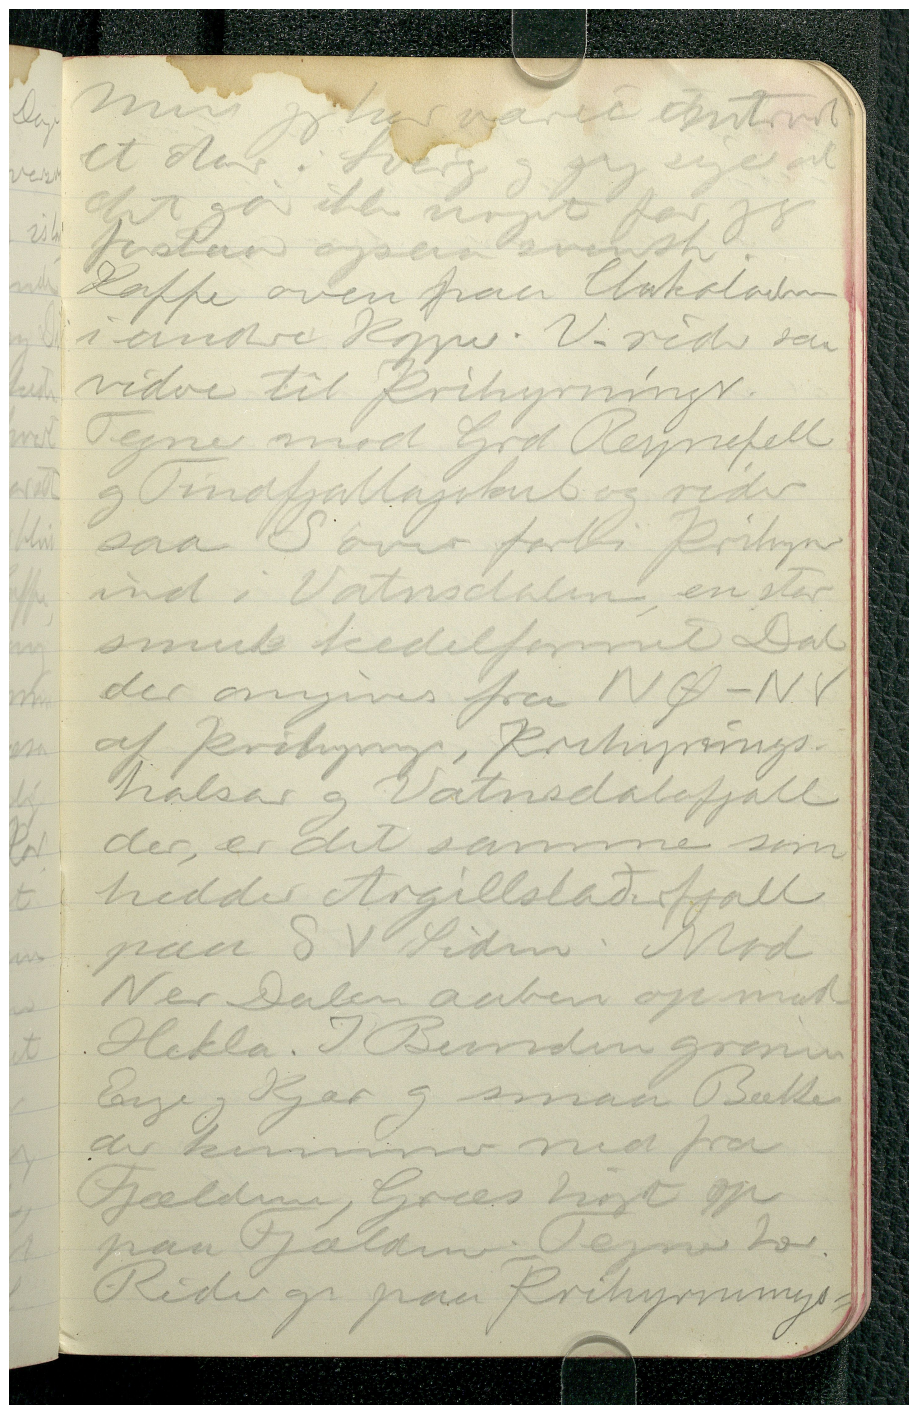 men jeg har været omtrent
et Aar i Sverig og jeg siger at
det gör ikke noget for jeg
forstaar ogsaa svensk.
Kaffe oven paa Chokoladen
i andre Kopper. Vi rider saa
videre til Þrihyrningr.
Tegner mod Grd Reynifell
og Tindfjallajökul og rider
saa S over forbi Þrihyrn
ind i Vatnsdalen, en stor
smuk kedelformet Dal
der omgives fra NØ-NV
af Þrihyrng, Þrihyrnings-
halsar og Vatnsdalsfjall
der, er det samme som
hedder Argillstaðafjall
paa SV Siden. Mod
N er Dalen aaben op mod
Hekla. I Bunden grønne
Enge og Kjær og smaa Bække
der kommer ned fra
Fjældene, Græs højt op
paa Fjældene. Tegner her.
Rider op paa Þrihyrnings-